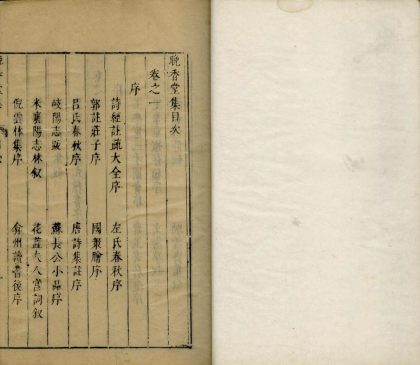 晚香堂集目次
卷之一
序
詩經註疏大全序
左氏春秋序
郭註莊子序
國策膾序
呂氏春秋序
唐詩集註序
岐陽志序
蘇長公小品序
米襄陽志林敘
花蕊夫人宮詞敘
倪雲林集序
弇州讀書後序